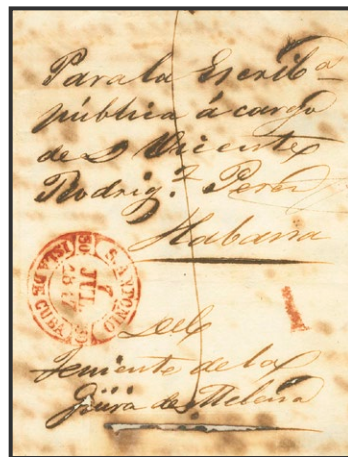 Para la Escrib.ª
pública á cargo
de D. Vicente
Rodrig.z Perez
Habana
S. ANTONIO
7
JUL
ISLA DE CUBA
1
Del
Teniente de la
de Melena